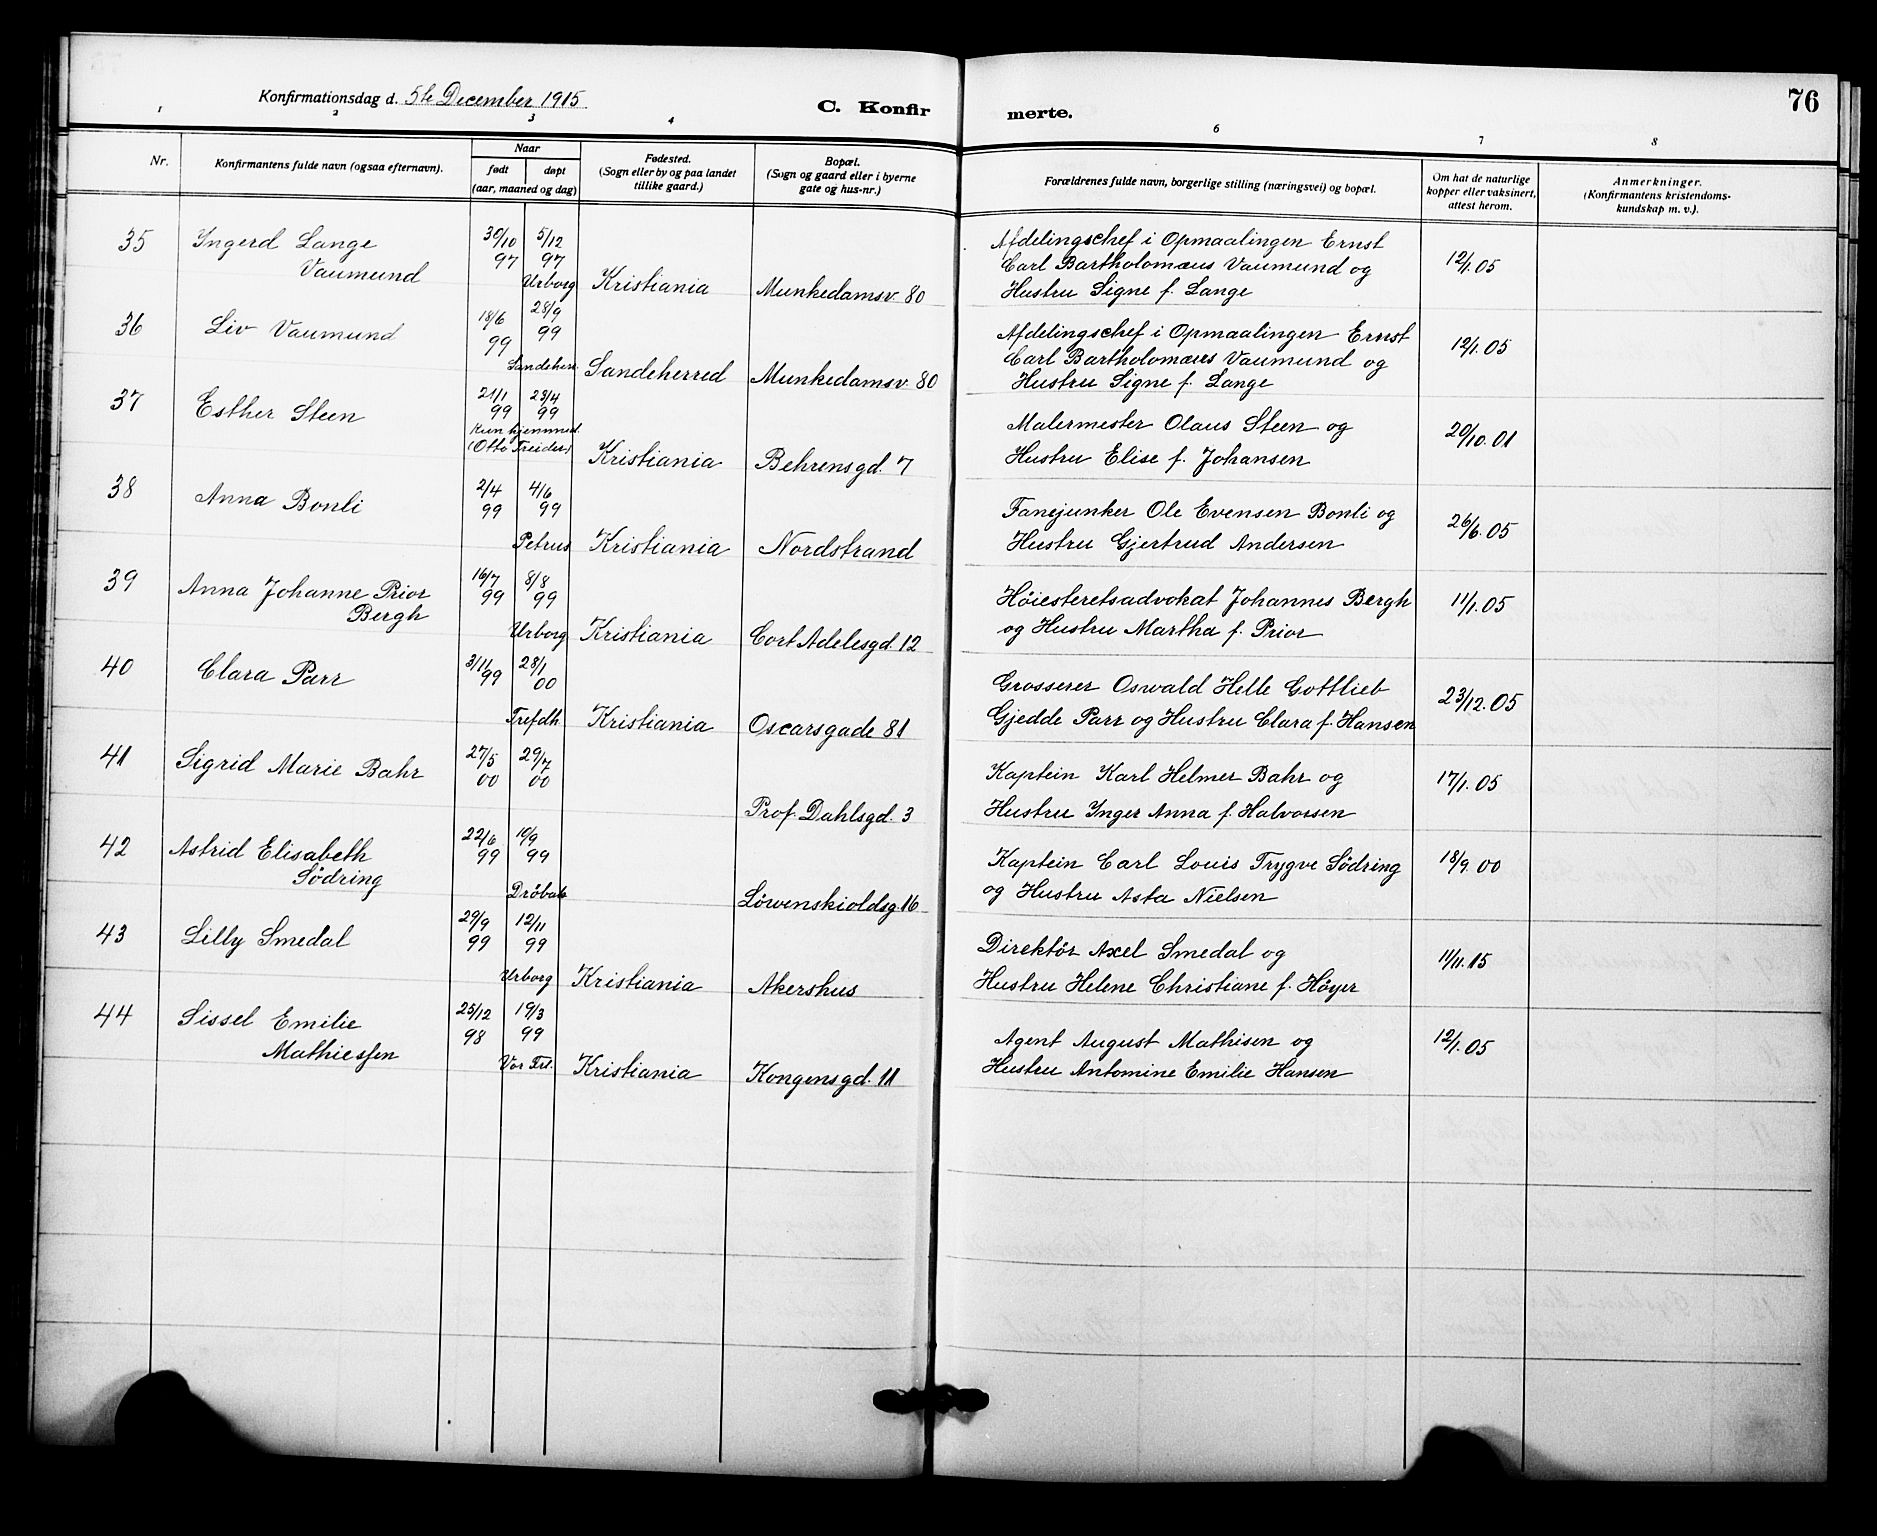 Konfirmationsdag d. 5te December 1915
C. Konfirmerte.
76
1 2 3 4 6 7 8
Nr.
Konfirmantens fulde navn (ogsaa efternavn).
Naar
født døpt
(aar, maaned og dag)
Fødested.
(Sogn eller by og paa landet
tillike gaard.)
Bopæl.
(Sogn og gaard eller i byerne
gate og hus-nr.)
Forældrenes fulde navn, borgerlige stilling (næringsvei) og bopæl.
Om hat de naturlige
kopper eller vaksinert,
attest herom.
Anmerkninger.
(Konfirmantens kristendoms-
kundskap m. v.).
35 Yngerd Lange
Vaumund
30/10 97 5/12 97
Urborg
Kristiania
Munkedamsv. 80
Afdelingschef i Opmaalingen Ernst
Carl Bartholomæus Vaumund og
Hustru Signe f. Lange
12/1.05
36 Liv Vaumund
18/6 99 28/9 99
Sandeherr.
Sandeherred
Munkedamsv. 80
Afdelingschef i Opmaalingen Ernst
Carl Bartholomæus Vaumund og
Hustru Signe f. Lange
12/1.05
37 Esther Steen
21/1 99 23/4 99
Kun hjemmed.
(Otto Treider)
Kristiania
Behrensgd. 7
Malermester Olaus Steen og
Hustru Elise f. Johansen
20/10.01
38 Anna Bonli
2/4 99 4/6 99
Petrus
Kristiania
Nordstrand
Fanejunker Ole Evensen Bonli og
Hustru Gjertrud Andersen
26/6.05
39 Anna Johanne Prior
Bergh
16/7 99 8/8 99
Urborg
Kristiania
Cort Adelesgd. 12
Høiesteretsadvokat Johannes Bergh
og Hustru Martha f. Prior
11/1.05
40 Clara Parr
3/11 99 28/1 00
Trefdh
Kristiania
Oscarsgade 81
Grosserer Oswald Helle Gottlieb
Gjedde Parr og Hustru Clara f. Hansen
23/12.05
41 Sigrid Marie Bahr
27/5 00 29/7 00
Prof. Dahlsgd. 3
Kaptein Karl Helmer Bahr og
Hustru Ynger Anna f. Halvorsen
17/1.05
42 Astrid Elisabeth
Södring
22/6 99 10/9 99
Dröbak
Löwenskioldsg. 16
Kaptein Carl Louis Trygve Södring
og Hustru Asta Nielsen
18/9.00
43 Lilly Smedal
29/9 99 12/11 99
Urborg
Kristiania
Akershus
Direktör Axel Smedal og
Hustru Helene Christiane f. Höyer
11/11.15
44 Sissel Emilie
Mathiessen
25/12 98 19/3 99
Vor Frl.
Kristiania
Kongensgd. 11
Agent August Mathisen og
Hustru Antomine Emilie Hansen
12/1.05